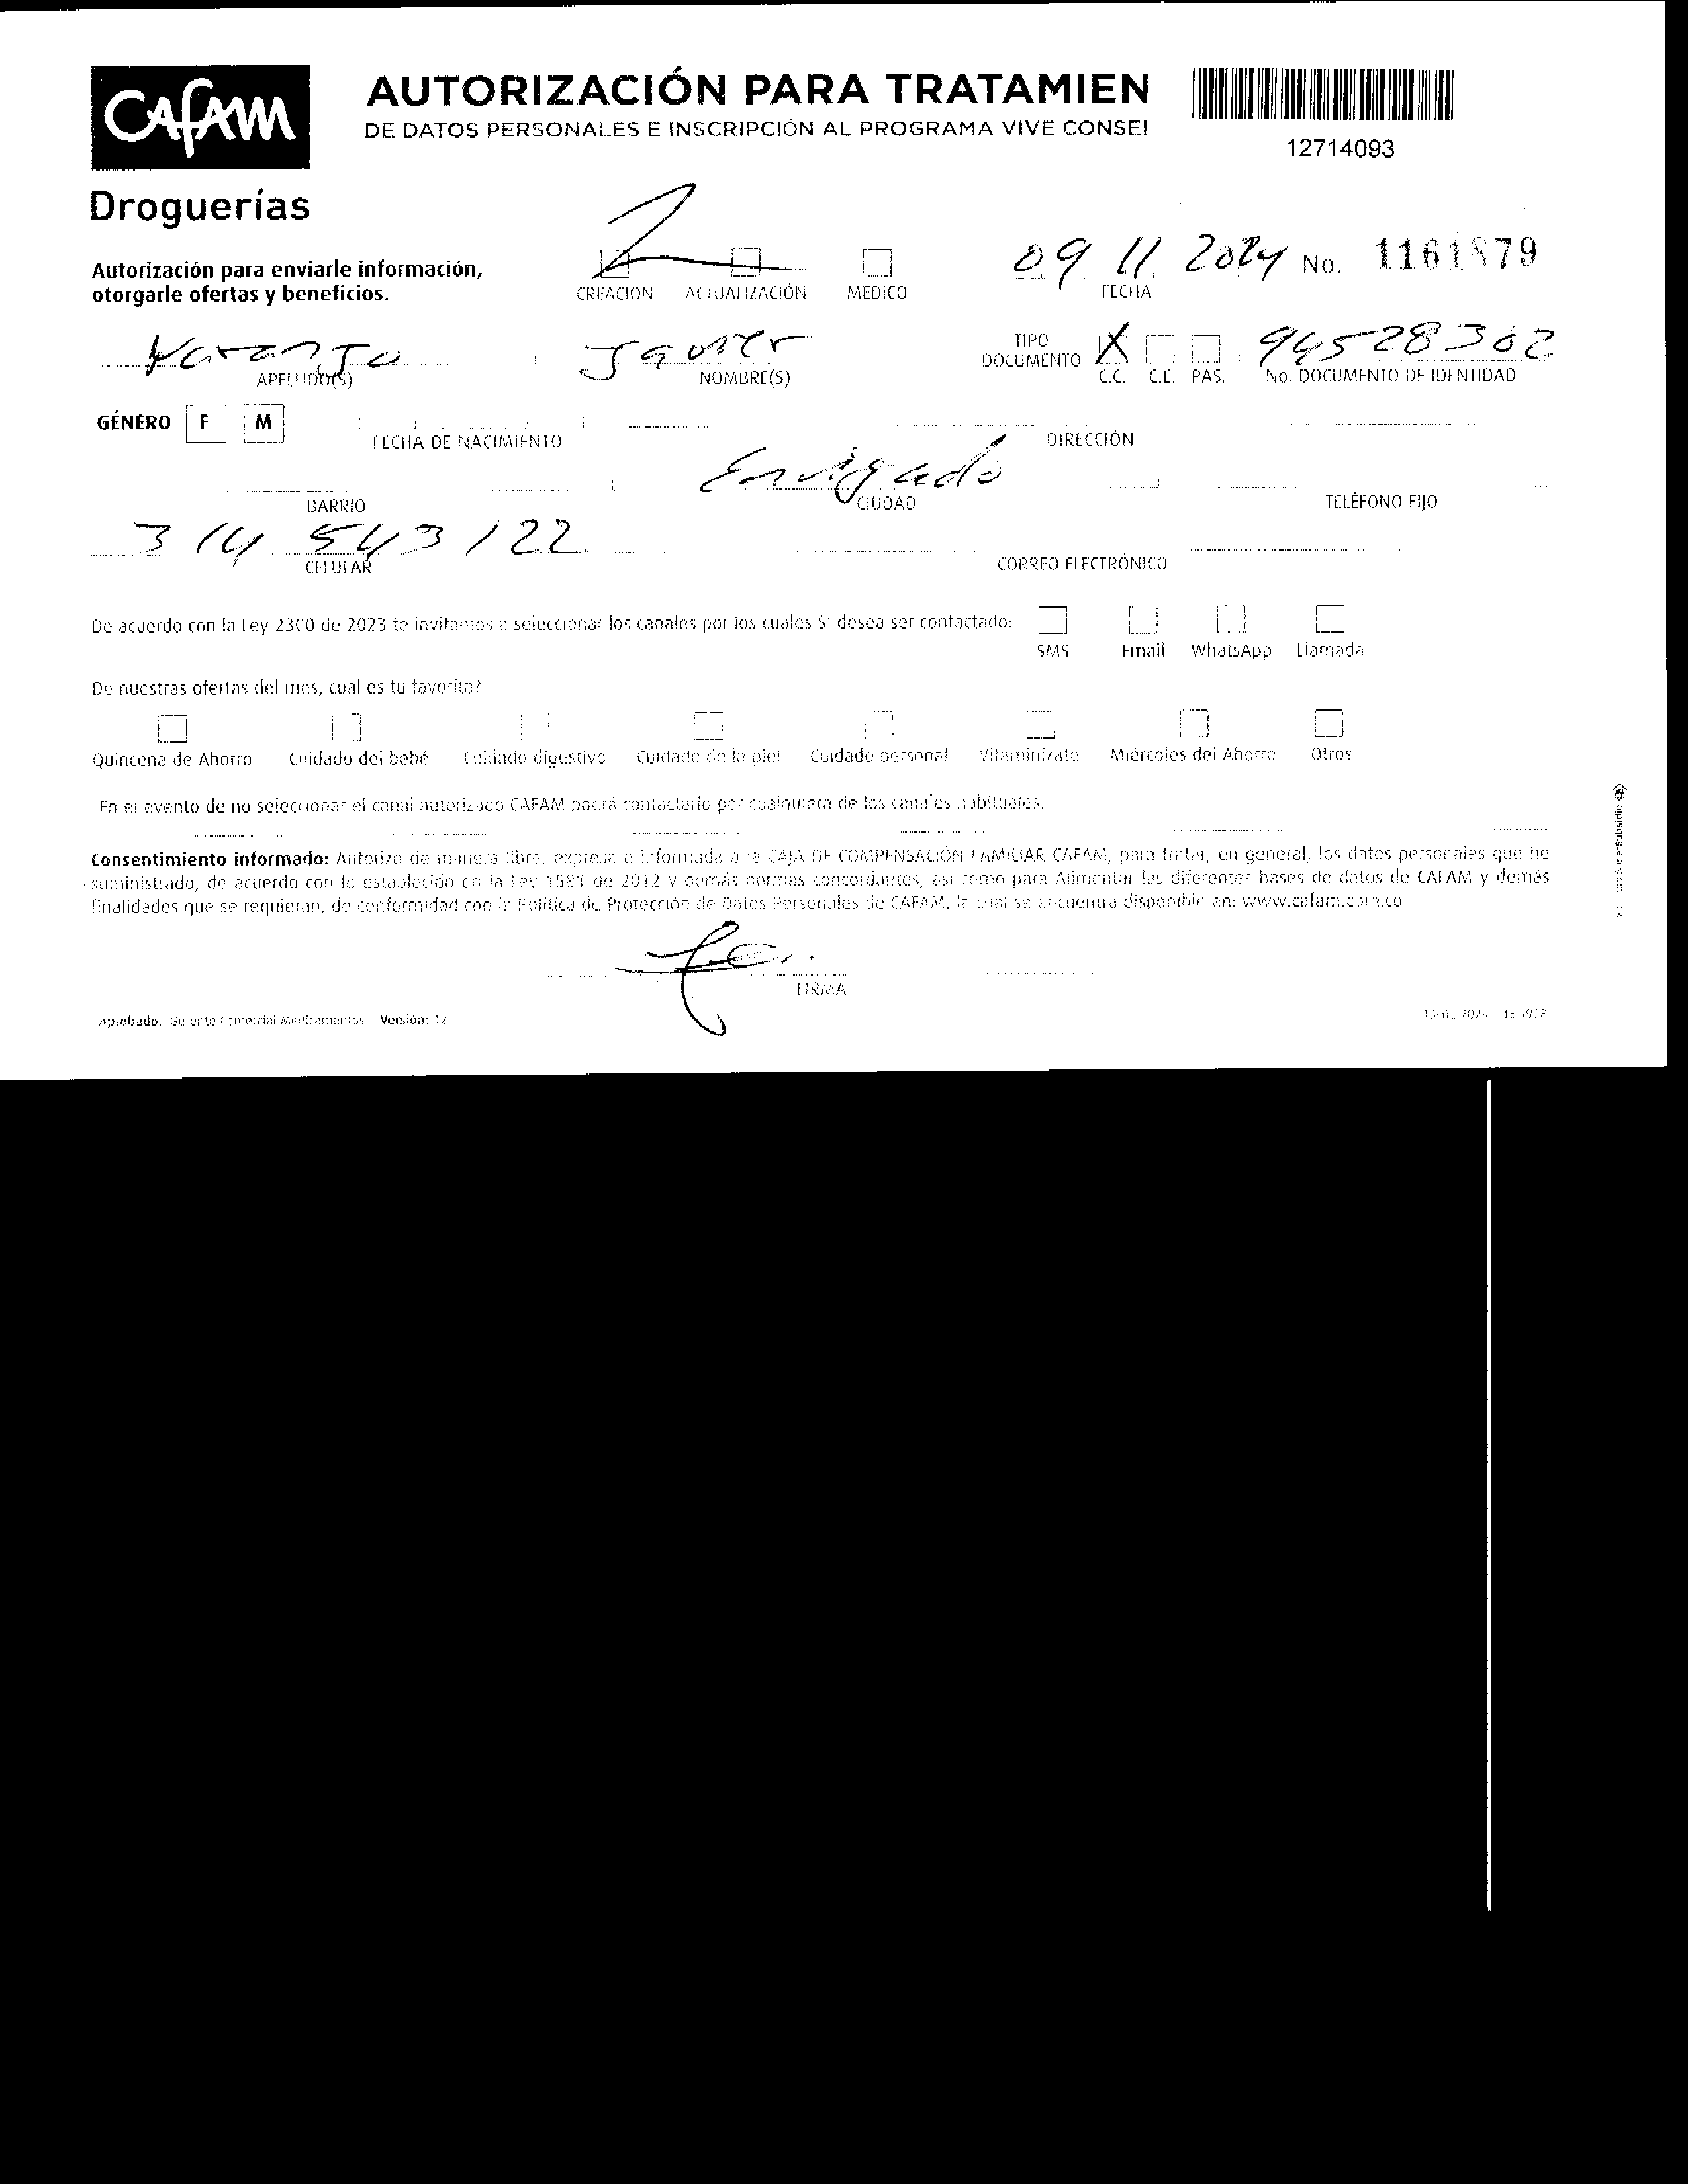 CAFAM
AUTORIZACIÓN PARA TRATAMIEN
DE DATOS PERSONALES E INSCRIPCIÓN AL PROGRAMA VIVE CONSEJ
12714093
Droguerías
Autorización para enviarle información,
otorgarle ofertas y beneficios.
CREACIÓN ACTUALIZACIÓN MÉDICO
09 11 2024 No. 1161879
FECHA
Naranjo Javier TIPO DOCUMENTO X 94528302
APELLIDO(S) NOMBRE(S) C.C. C.E. PAS. No. DOCUMENTO DE IDENTIDAD
GÉNERO F M
FECHA DE NACIMIENTO DIRECCIÓN
Envigado
BARRIO CIUDAD TELÉFONO FIJO
314 543 122
CELULAR CORREO ELECTRÓNICO
De acuerdo con la Ley 2300 de 2023 te invitamos a seleccionar los canales por los cuales SI desea ser contactado:
SMS Email WhatsApp Llamada
De nuestras ofertas del mes, cual es tu favorita?
Quincena de Ahorro Cuidado del bebé Cuidado digestivo Cuidado de la piel Cuidado personal Vitaminízate Miércoles del Ahorro Otros
En el evento de no seleccionar el canal autorizado CAFAM podrá contactarlo por cualquiera de los canales habituales.
Consentimiento informado: Autorizo de manera libre, expresa e informada a la CAJA DE COMPENSACIÓN FAMILIAR CAFAM, para tratar, en general, los datos personales que he
suministrado, de acuerdo con lo establecido en la Ley 1581 de 2012 y demás normas concordantes, así como para Alimentar las diferentes bases de datos de CAFAM y demás
finalidades que se requieran, de conformidad con la Política de Protección de Datos Personales de CAFAM, la cual se encuentra disponible en: www.cafam.com.co
FIRMA
Aprobado. Gerente Comercial Medicamentos Versión: 12